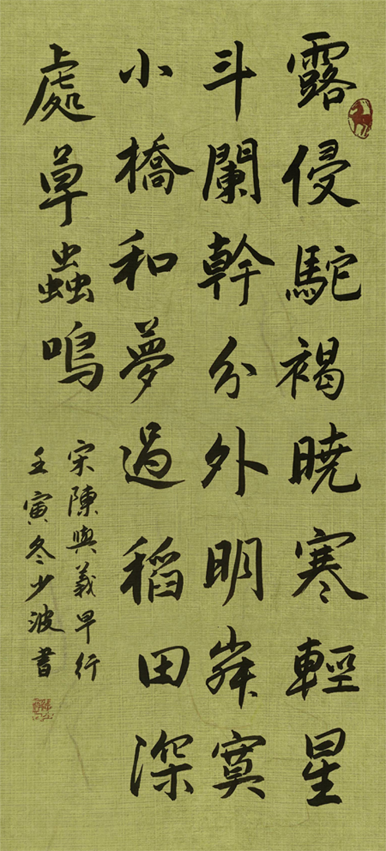 露侵駝褐曉寒輕星
斗闌幹分外明寂寞
小橋和夢過稻田深
處草蟲鳴
宋陳與義早行
壬寅冬少波書